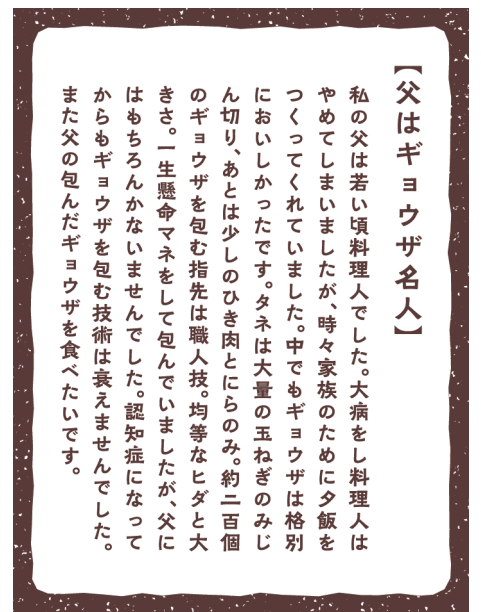 【父はギョウザ名人】
私の父は若い頃料理人でした。大病をし料理人は
やめてしまいましたが、時々家族のために夕飯を
つくってくれていました。中でもギョウザは格別
においしかったです。タネは大量の玉ねぎのみじ
ん切り、あとは少しのひき肉とにらのみ。約二百個
のギョウザを包む指先は職人技。均等なヒダと大
きさ。一生懸命マネをして包んでいましたが、父に
はもちろんかないませんでした。認知症になって
からもギョウザを包む技術は衰えませんでした。
また父の包んだギョウザを食べたいです。